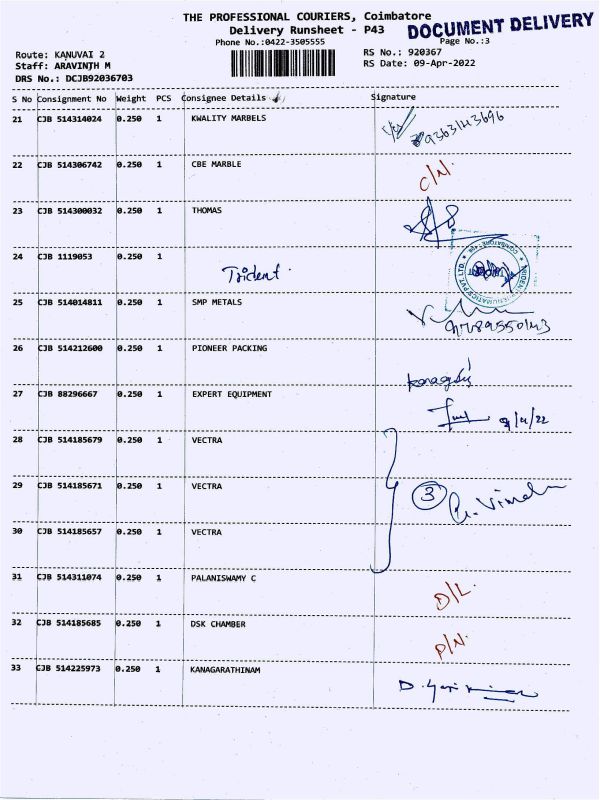 THE PROFESSIONAL COURIERS, Coimbatore
DOCUMENT DELIVERY
Delivery Runsheet - P43
Page No.:3
Phone No.:0422-3505555
Route: KANUVAI 2
RS No.: 920367
Staff: ARAVINTH M
RS Date: 09-Apr-2022
DRS No.: DCJB92036703
S No Consignment No Weight PCS Consignee Details Signature
21 CJB 514314024 0.250 1 KWALITY MARBELS
22 CJB 514306742 0.250 1 CBE MARBLE C/N.
23 CJB 514300032 0.250 1 THOMAS
24 CJB 1119053 0.250 1 Trident.
25 CJB 514014811 0.250 1 SMP METALS
26 CJB 514212600 0.250 1 PIONEER PACKING
27 CJB 88296667 0.250 1 EXPERT EQUIPMENT 9/4/22
28 CJB 514185679 0.250 1 VECTRA
29 CJB 514185671 0.250 1 VECTRA 3
30 CJB 514185657 0.250 1 VECTRA
31 CJB 514311074 0.250 1 PALANISWAMY C D/L.
32 CJB 514185685 0.250 1 DSK CHAMBER P/N.
33 CJB 514225973 0.250 1 KANAGARATHINAM